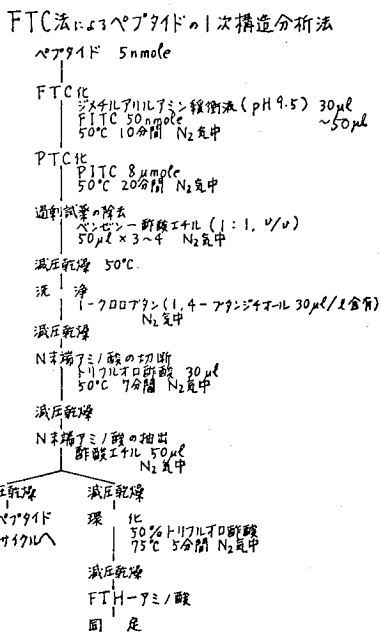 FTC法によるペプタイドの1次構造分析法
ペプタイド 5nmole
FTC化
ジメチルアリルアミン緩衝液(pH9.5) 30μl
FITC 50nmole ～50μl
50℃ 10分間 N₂気中
PTC化
PITC 8μmole
50℃ 20分間 N₂気中
過剰試薬の除去
ベンゼン－酢酸エチル(1:1, v/v)
50μl×3～4 N₂気中
減圧乾燥 50℃.
洗浄
1-クロロブタン(1,4-ブタンジチオール 30μl/l含有)
N₂気中
減圧乾燥
N末端アミノ酸の切断
トリフルオロ酢酸 30μl
50℃ 7分間 N₂気中
減圧乾燥
N末端アミノ酸の抽出
酢酸エチル 50μl
N₂気中
圧乾燥 減圧乾燥
ペプタイド 環化
サイクルへ 50%トリフルオロ酢酸
75℃ 5分間 N₂気中
減圧乾燥
FTH－アミノ酸
同定